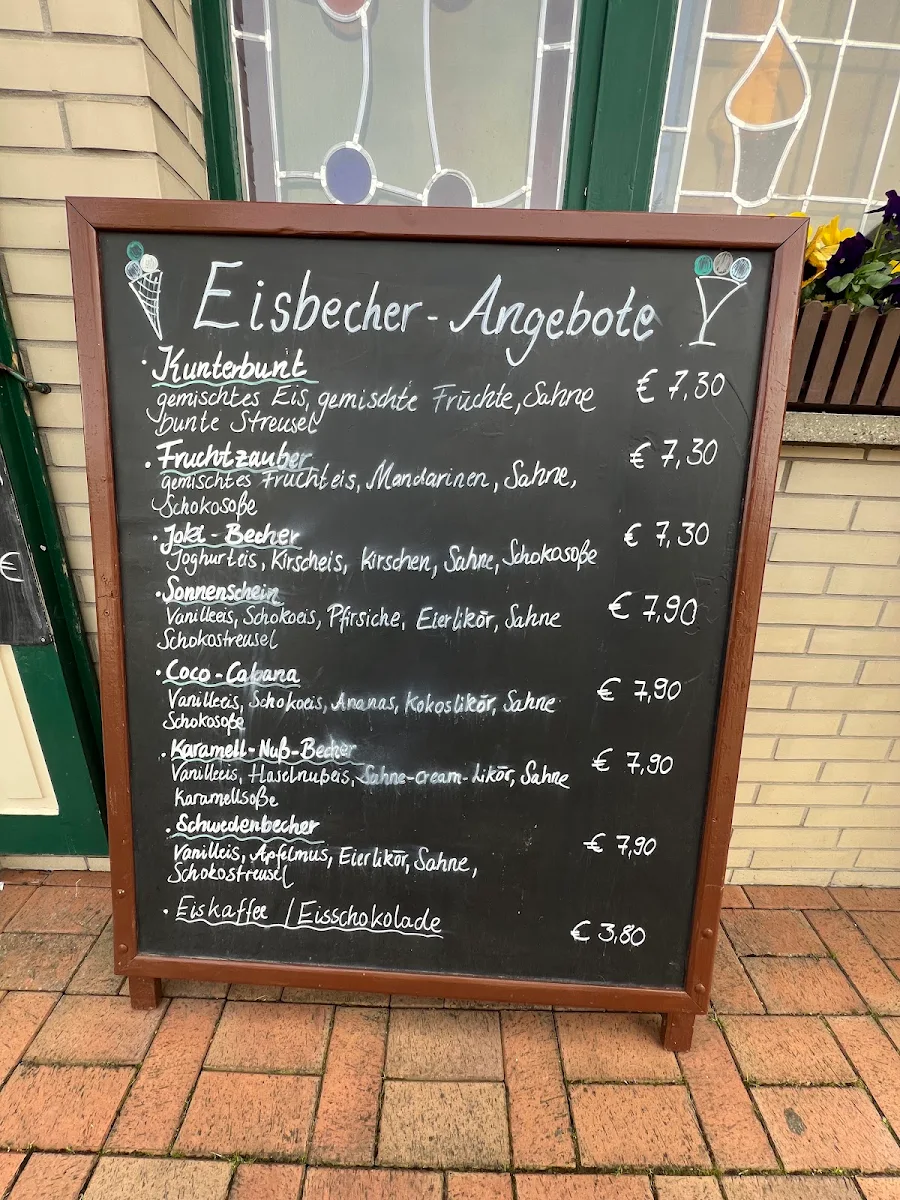 Eisbecher - Angebote
· Kunterbunt € 7,30
gemischtes Eis, gemischte Früchte, Sahne
bunte Streusel
· Fruchtzauber € 7,30
gemischtes Fruchteis, Mandarinen, Sahne,
Schokosoße
· Joki - Becher € 7,30
Joghurteis, Kirscheis, Kirschen, Sahne, Schokosoße
· Sonnenschein € 7,90
Vanilleeis, Schokoeis, Pfirsiche, Eierlikör, Sahne
Schokostreusel
· Coco - Cabana € 7,90
Vanilleeis, Schokoeis, Ananas, Kokoslikör, Sahne
Schokosoße
· Karamell - Nuß - Becher € 7,90
Vanilleeis, Haselnußeis, Sahne-cream-Likör, Sahne
Karamellsoße
· Schwedenbecher € 7,90
Vanilleis, Apfelmus, Eierlikör, Sahne,
Schokostreusel
· Eiskaffee / Eisschokolade € 3,80
€